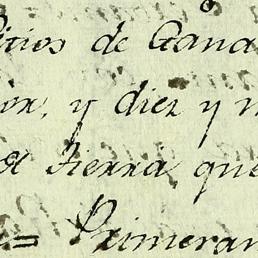 itios de Gana
ior, y diez y n
a tierra que
= Primeram